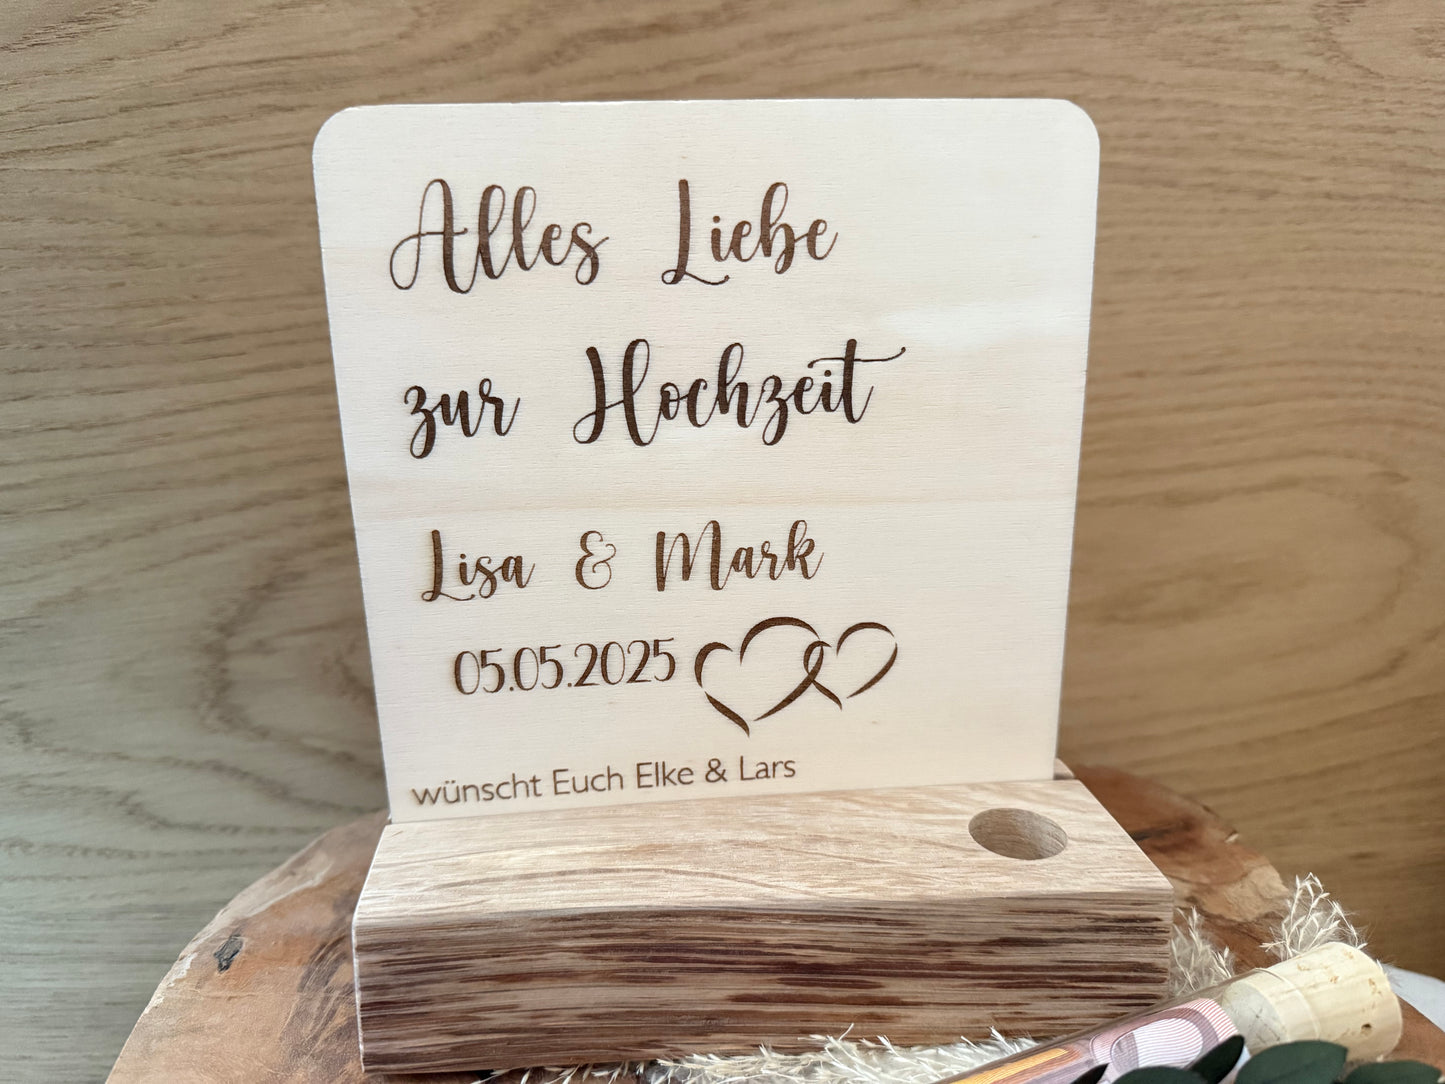 Alles Liebe
zur Hochzeit
Lisa & Mark
05.05.2025
wünscht Euch Elke & Lars